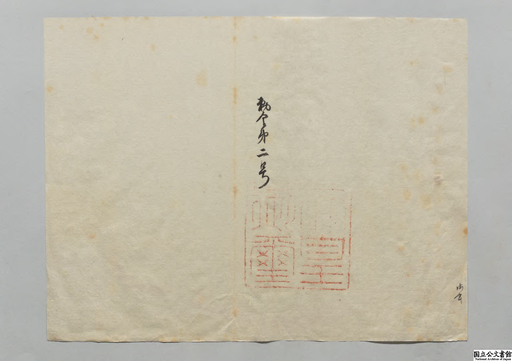 勅令第二号
天皇御璽
国立公文書館
National Archives of Japan